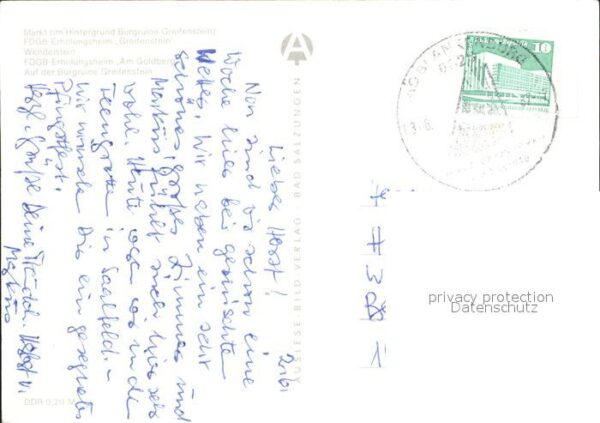 Markt (im Hintergrund Burgruine Greifenstein)
FDGB-Erholungsheim „Greifenstein"
Wendelstein
FDGB-Erholungsheim „Am Goldberg"
Auf der Burgruine Greifenstein
A
AUSLESE-BILD-VERLAG BAD SALZUNGEN
DDR 0,20 M
10
2.6.
Lieber Horst!
Nun sind wir schon eine
Woche hier bei gemischtem
Wetter. Wir haben ein sehr
schönes, großes Zimmer und
Markus fühlt sich hier sehr
wohl. Heute waren wir in den
Feengrotten in Saalfeld. -
Wir wünschen Dir ein gesegnetes
Pfingstfest.
Herzl. Grüße Deine
Markus
privacy protection
Datenschutz